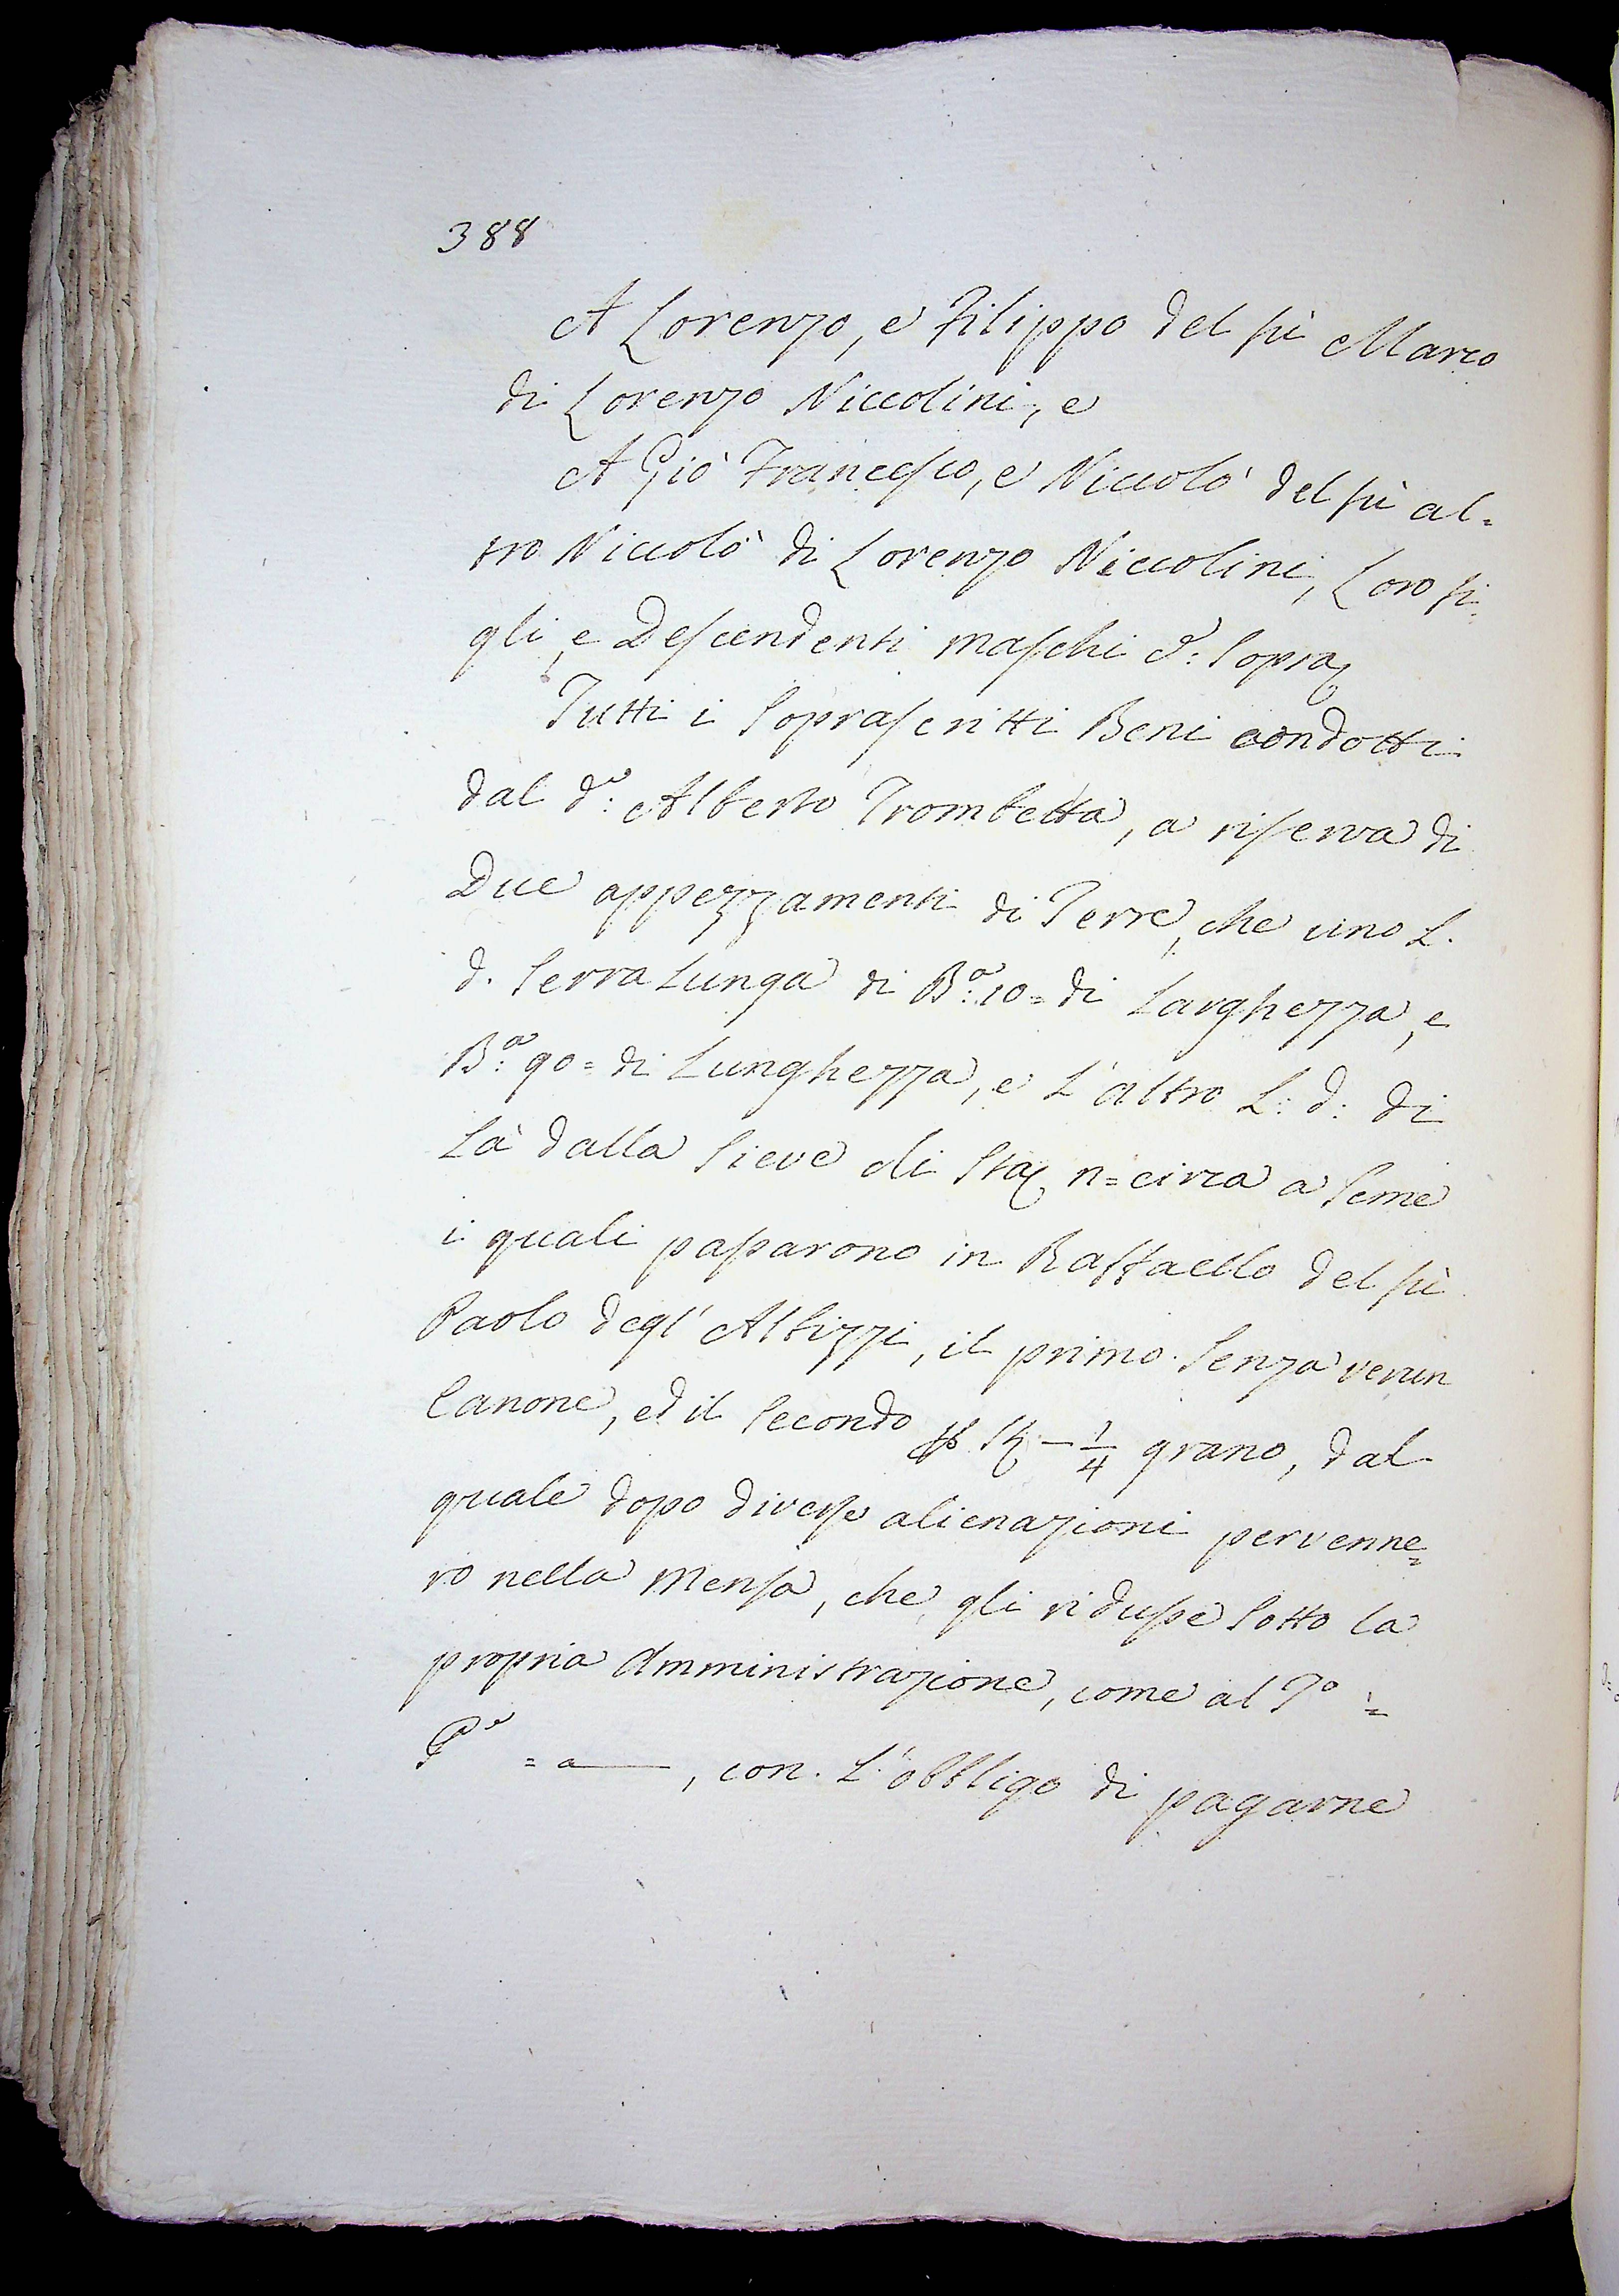 388
A Lorenzo, e Filippo del fù Marco
di Lorenzo Niccolini, e
A Giò Francesco, e Niccolò del fù al=
tro Niccolò di Lorenzo Niccolini, Loro fi=
gli, e Descendenti maschi d: Sopra
Tutti i Soprascritti Beni condotti
dal d.o: Alberto Trombetta, a riserva di
Due appezzamenti di Terre, che uno L.
d. Serra Lunga di B.a: 10= di Larghezza, e
B.a: 90= di Lunghezza, e L'altro L: d: di
Là dalla Sieve di Sta n= circa a Seme
i quali passarono in Raffaello del fù
Paolo degl' Albizzi, il primo Senza verun
Canone, ed il Secondo St — 1/4 grano, dal
quale dopo diverse alienazioni pervenne=
ro nella Mensa, che gli ridusse Sotto la
propria Amministrazione, come al T.o =
= a —, con L'obbligo di pagarne